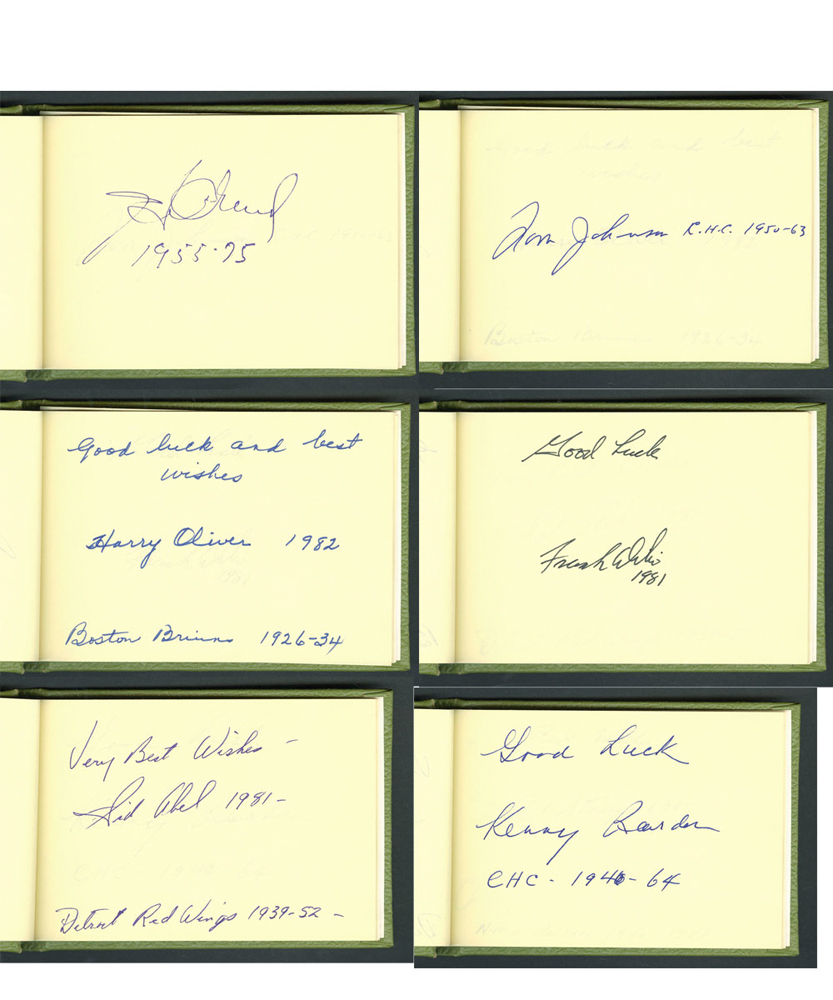 1955-75
Tom Johnson C.H.C. 1950-63
Good luck and best
wishes
Harry Oliver 1982
Boston Bruins 1926-34
Good Luck
Frank
1981
Very Best Wishes -
Sid Abel 1981 -
Detroit Red Wings 1939-52 -
Good Luck
Kenny Reardon
CHC -